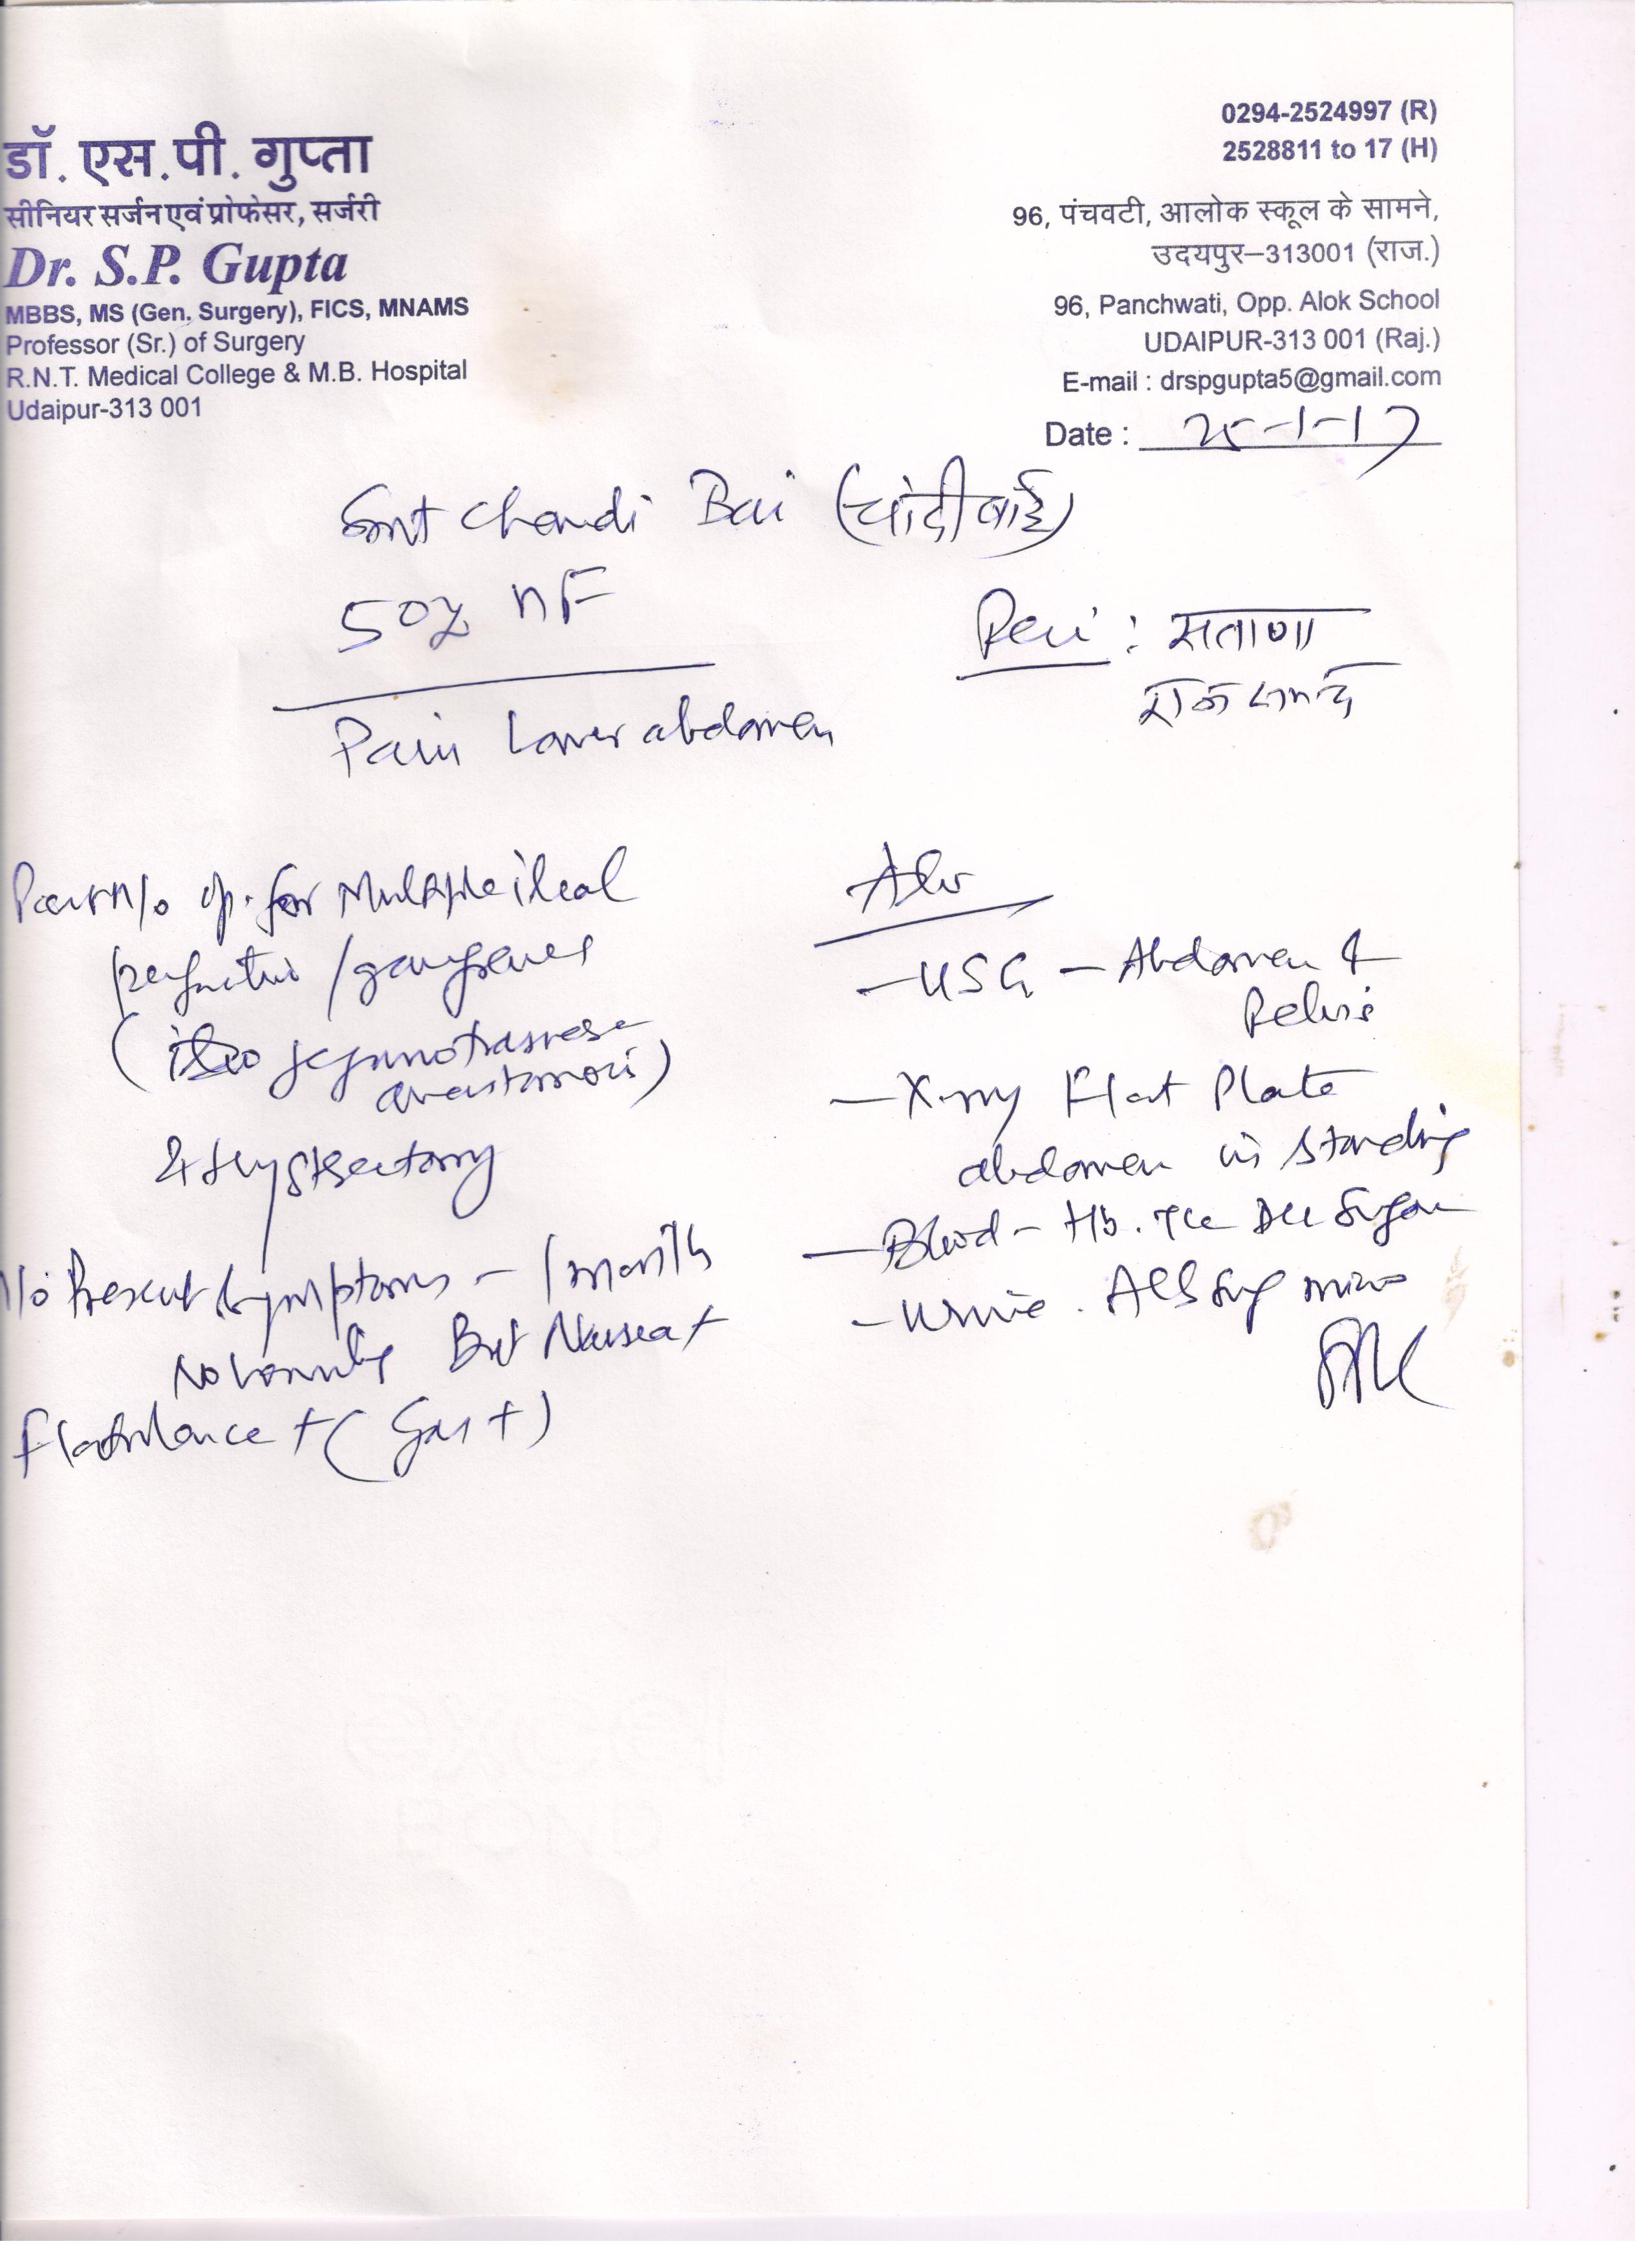 डॉ. एस.पी. गुप्ता
सीनियर सर्जन एवं प्रोफेसर, सर्जरी
Dr. S.P. Gupta
MBBS, MS (Gen. Surgery), FICS, MNAMS
Professor (Sr.) of Surgery
R.N.T. Medical College & M.B. Hospital
Udaipur-313 001
0294-2524997 (R)
2528811 to 17 (H)
96, पंचवटी, आलोक स्कूल के सामने,
उदयपुर–313001 (राज.)
96, Panchwati, Opp. Alok School
UDAIPUR-313 001 (Raj.)
E-mail : drspgupta5@gmail.com
Date : 25-1-17
Smt Chandi Bai (चांदी बाई)
50y F
सताणा
Pain Lower abdomen
Past H/o op. for Multiple ileal
/gangrenes
( jejunotransverse
anastomosis)
&
H/o Present Symptoms - 1 month
No vomiting But Nausea +
Flatulance + (Gas +)
Adv
- USG - Abdomen &
Pelvis
- X-ray Flat Plate
abdomen in standing
- Blood - Hb. TLC DLC Sugar
- Urine . Alb Sug micro